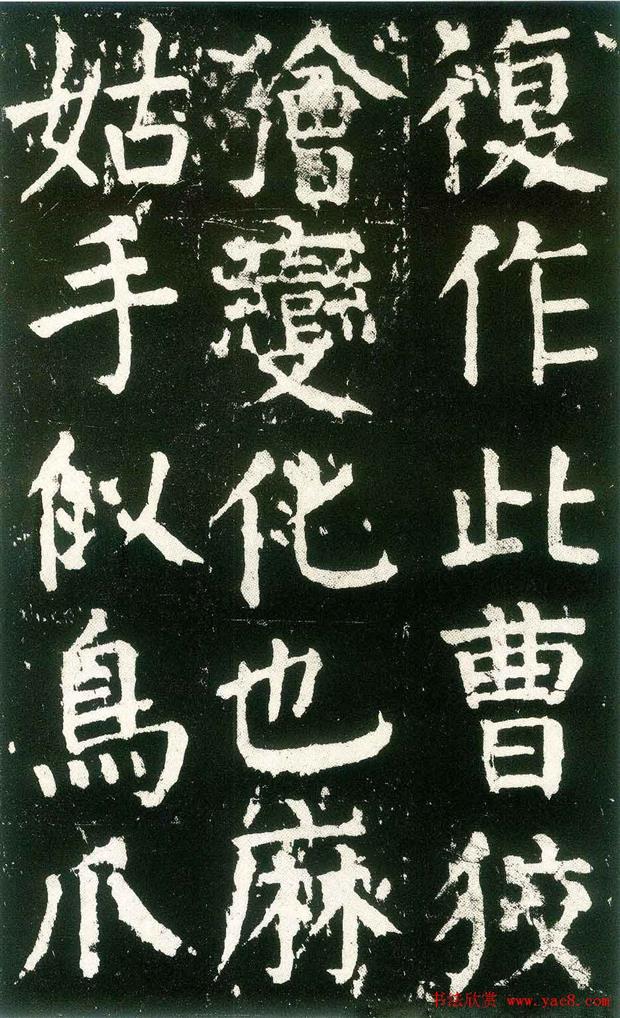 復作此曹狡
獪變化也麻
姑手似鳥爪
书法欣赏 www.yac8.com